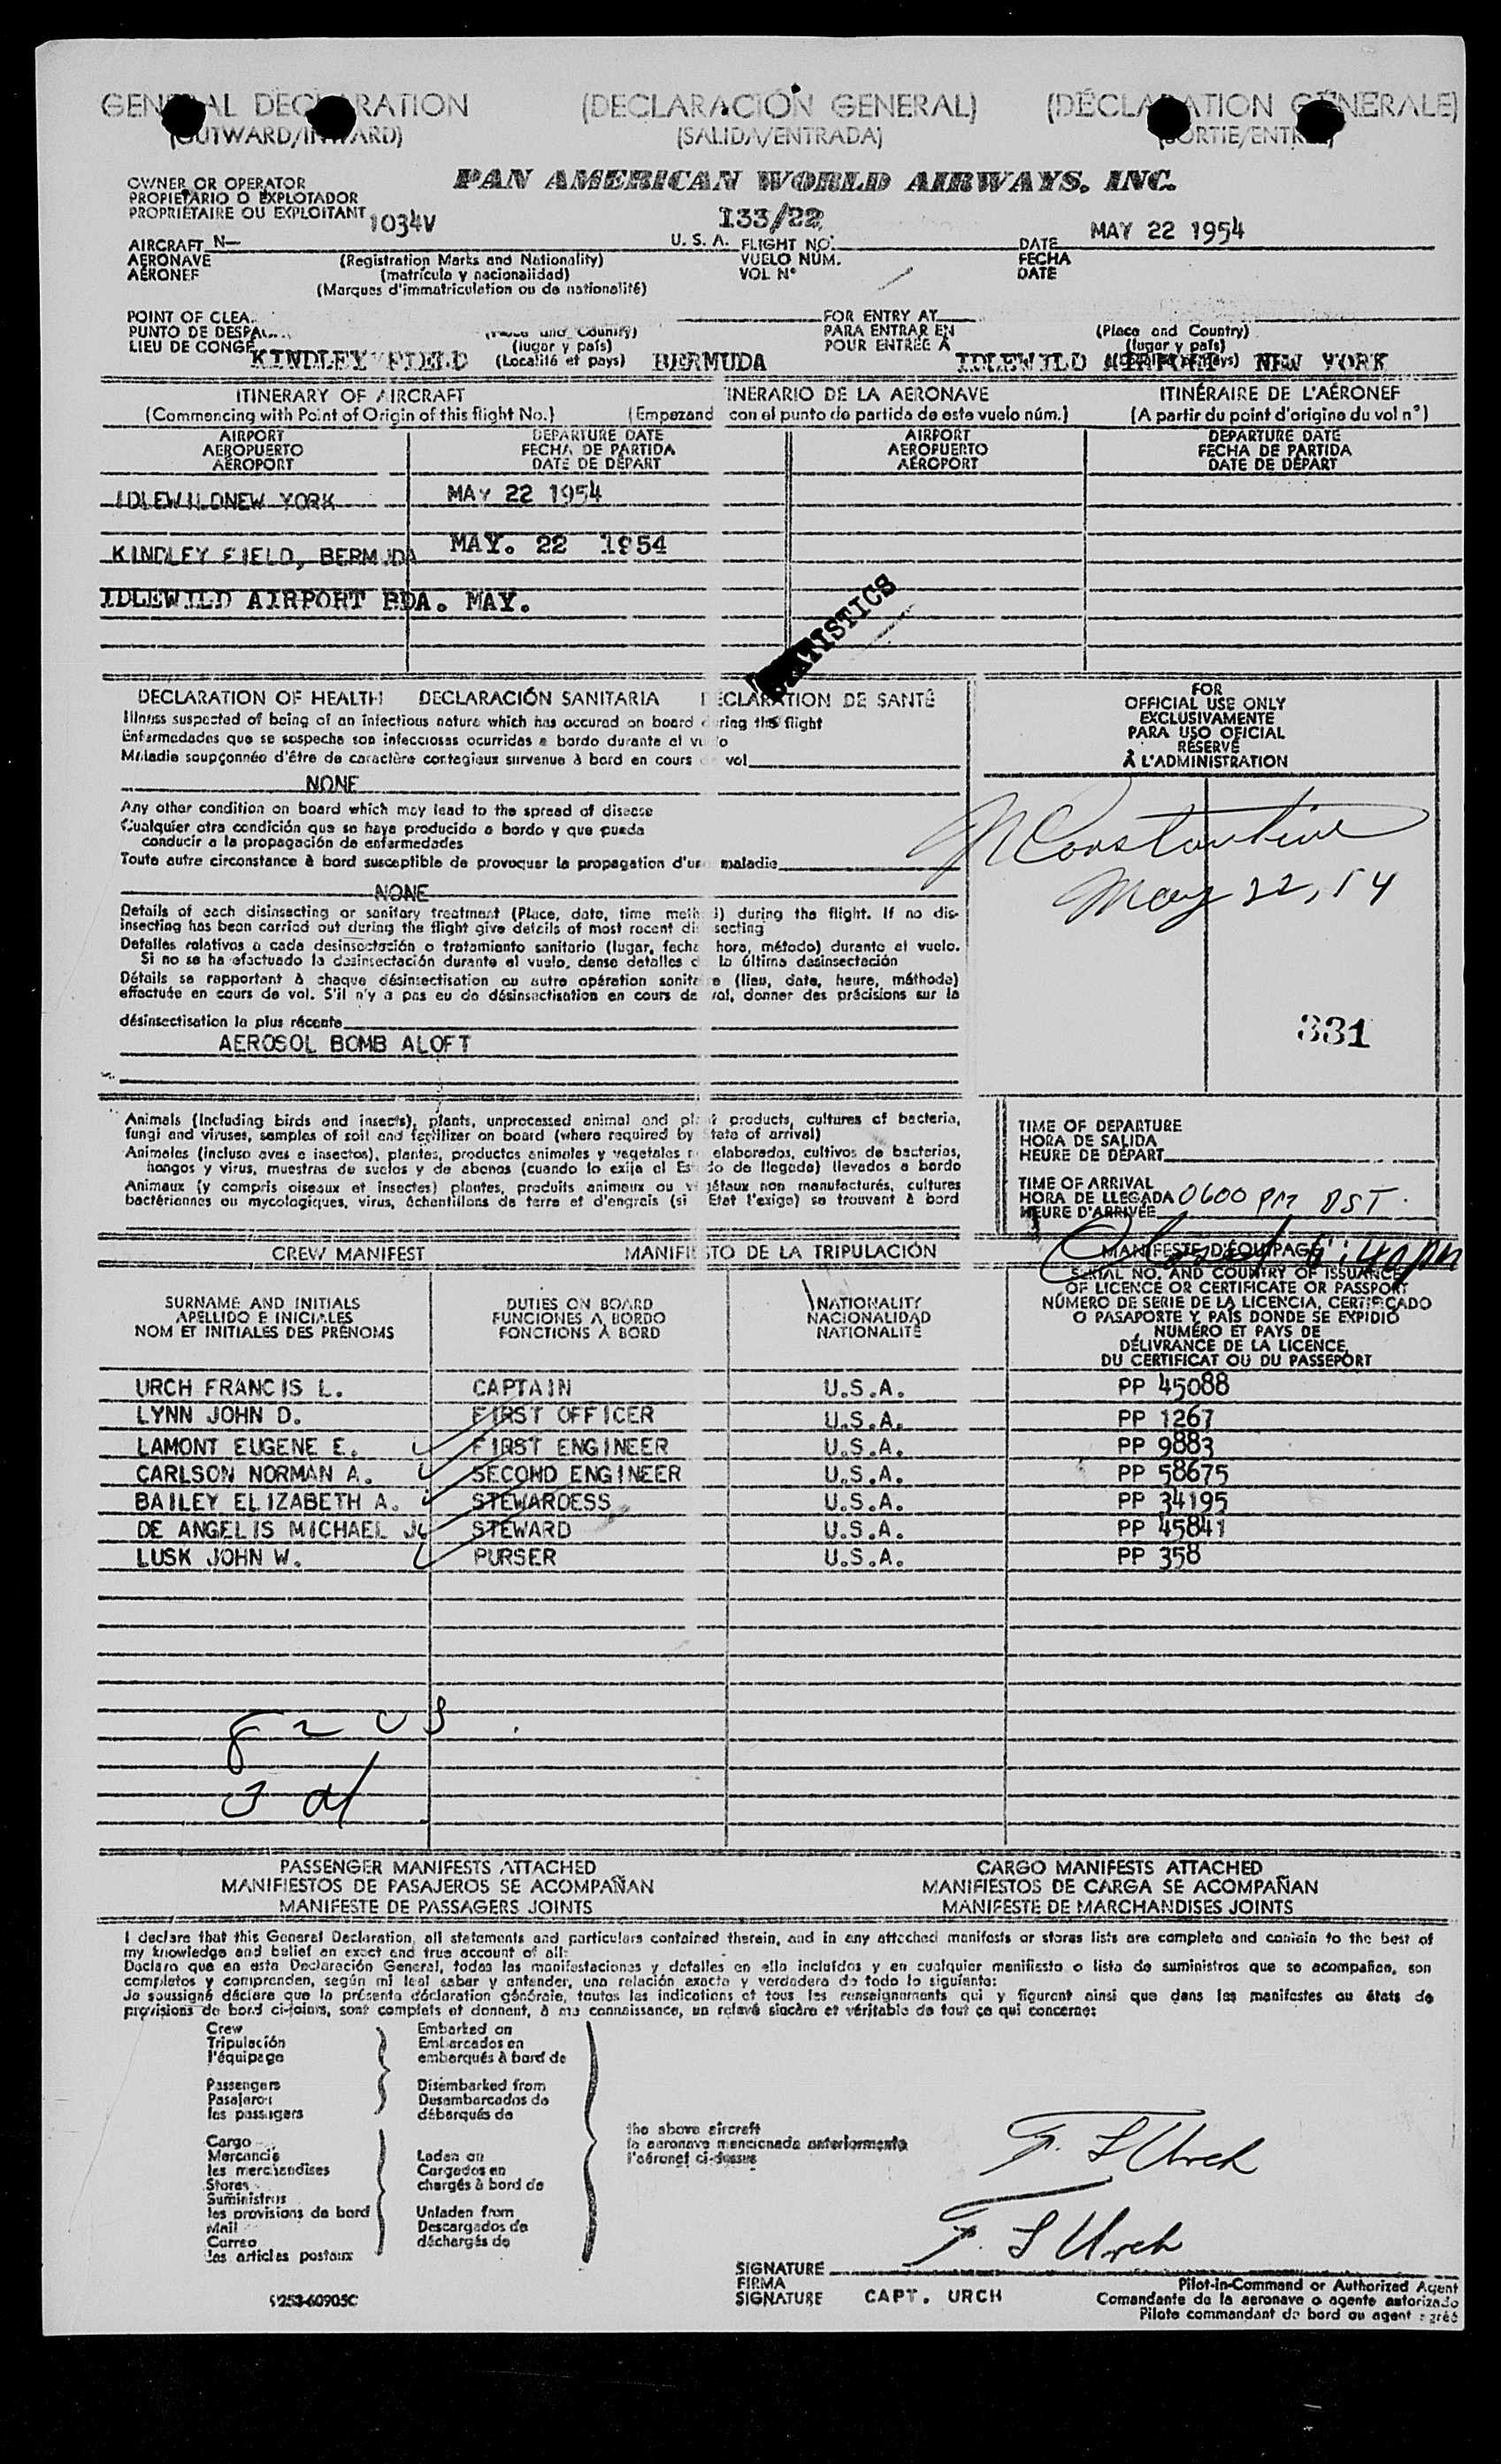 GENERAL DECLARATION (DECLARACIÓN GENERAL) (DÉCLARATION GÉNÉRALE)
(OUTWARD/INWARD) (SALIDA/ENTRADA) (SORTIE/ENTRÉE)
OWNER OR OPERATOR PAN AMERICAN WORLD AIRWAYS, INC.
PROPIETARIO O EXPLOTADOR
PROPRIÉTAIRE OU EXPLOITANT
1034V 133/22 MAY 22 1954
AIRCRAFT N— U. S. A. FLIGHT NO. DATE
AERONAVE (Registration Marks and Nationality) VUELO NÚM. FECHA
AÉRONEF (matrícula y nacionalidad) VOL Nº DATE
(Marques d'immatriculation ou de nationalité)
POINT OF CLEA. FOR ENTRY AT
PUNTO DE DESPA (Place and Country) PARA ENTRAR EN (Place and Country)
LIEU DE CONGÉ (lugar y país) POUR ENTRÉE À (lugar y país)
KINDLEY FIELD (Localité et pays) BERMUDA IDLEWILD AIRPORT NEW YORK
ITINERARY OF AIRCRAFT INERARIO DE LA AERONAVE ITINÉRAIRE DE L'AÉRONEF
(Commencing with Point of Origin of this flight No.) (Empezand con el punto de partida de este vuelo núm.) (A partir du point d'origine du vol nº)
AIRPORT DEPARTURE DATE AIRPORT DEPARTURE DATE
AEROPUERTO FECHA DE PARTIDA AEROPUERTO FECHA DE PARTIDA
AÉROPORT DATE DE DÉPART AÉROPORT DATE DE DÉPART
IDLEWILDNEW YORK MAY 22 1954
KINDLEY FIELD, BERMUDA MAY. 22 1954
IDLEWILD AIRPORT BDA. MAY.
STATISTICS
DECLARATION OF HEALTH DECLARACIÓN SANITARIA DECLARATION DE SANTÉ
Illness suspected of being of an infectious nature which has occured on board during the flight
Enfermedades que se sospecha son infecciosas ocurridas a bordo durante el vuelo
Maladie soupçonnée d'être de caractère contagieux survenue à bord en cours de vol
NONE
Any other condition on board which may lead to the spread of disease
Cualquier otra condición que se haya producido a bordo y que pueda
conducir a la propagación de enfermedades
Toute autre circonstance à bord susceptible de provoquer la propagation d'une maladie
NONE
Details of each disinsecting or sanitary treatment (Place, date, time method) during the flight. If no dis-
insecting has been carried out during the flight give details of most recent disinsecting
Detalles relativos a cada desinsectación o tratamiento sanitario (lugar, fecha hora, método) durante el vuelo.
Si no se ha efectuado la desinsectación durante el vuelo, dense detalles de la última desinsectación
Détails se rapportant à chaque désinsectisation ou autre opération sanitaire (lieu, date, heure, méthode)
effectuée en cours de vol. S'il n'y a pas eu de désinsectisation en cours de vol, donner des précisions sur la
désinsectisation la plus récente
AEROSOL BOMB ALOFT
FOR
OFFICIAL USE ONLY
EXCLUSIVAMENTE
PARA USO OFICIAL
RÉSERVÉ
À L'ADMINISTRATION
N Constantine
May 22, 54
331
Animals (Including birds and insects), plants, unprocessed animal and plant products, cultures of bacteria,
fungi and viruses, samples of soil and fertilizer on board (where required by State of arrival)
Animales (incluso aves e insectos), plantas, productos animales y vegetales no elaborados, cultivos de bacterias,
hongos y virus, muestras de suelos y de abonos (cuando lo exija el Estado de llegada) llevados a bordo
Animaux (y compris oiseaux et insectes) plantes, produits animaux ou végétaux non manufacturés, cultures
bactériennes ou mycologiques, virus, échantillons de terre et d'engrais (si Etat l'exige) se trouvant à bord
TIME OF DEPARTURE
HORA DE SALIDA
HEURE DE DÉPART
TIME OF ARRIVAL
HORA DE LLEGADA 0600 PM DST.
HEURE D'ARRIVÉE
CREW MANIFEST MANIFIESTO DE LA TRIPULACIÓN MANIFESTE D'ÉQUIPAGE
SURNAME AND INITIALS DUTIES ON BOARD NATIONALITY SERIAL NO. AND COUNTRY OF ISSUANCE
APELLIDO E INICIALES FUNCIONES A BORDO NACIONALIDAD OF LICENCE OR CERTIFICATE OR PASSPORT
NOM ET INITIALES DES PRÉNOMS FONCTIONS À BORD NATIONALITÉ NÚMERO DE SERIE DE LA LICENCIA, CERTIFICADO
O PASAPORTE Y PAÍS DONDE SE EXPIDIÓ
NUMÉRO ET PAYS DE
DÉLIVRANCE DE LA LICENCE,
DU CERTIFICAT OU DU PASSEPORT
URCH FRANCIS L. CAPTAIN U.S.A. PP 45088
LYNN JOHN D. FIRST OFFICER U.S.A. PP 1267
LAMONT EUGENE E. FIRST ENGINEER U.S.A. PP 9883
CARLSON NORMAN A. SECOND ENGINEER U.S.A. PP 58675
BAILEY ELIZABETH A. STEWARDESS U.S.A. PP 34195
DE ANGELIS MICHAEL J. STEWARD U.S.A. PP 45841
LUSK JOHN W. PURSER U.S.A. PP 358
82 US
3 al
PASSENGER MANIFESTS ATTACHED CARGO MANIFESTS ATTACHED
MANIFIESTOS DE PASAJEROS SE ACOMPAÑAN MANIFIESTOS DE CARGA SE ACOMPAÑAN
MANIFESTE DE PASSAGERS JOINTS MANIFESTE DE MARCHANDISES JOINTS
I declare that this General Declaration, all statements and particulars contained therein, and in any attached manifests or stores lists are complete and contain to the best of
my knowledge and belief an exact and true account of all:
Declaro que en esta Declaración General, todas las manifestaciones y detalles en ella incluídos y en cualquier manifiesto o lista de suministros que se acompañen, son
completos y comprenden, según mi leal saber y entender, una relación exacta y verdadera de todo lo siguiente:
Je soussigné déclare que la présente déclaration générale, toutes les indications et tous les renseignements qui y figurent ainsi que dans les manifestes ou états de
provisions de bord ci-joints, sont complets et donnent, à ma connaissance, un relevé sincère et véritable de tout ce qui concerne:
Crew Embarked on
Tripulación Embarcados en
l'équipage embarqués à bord de
Passengers Disembarked from
Pasajeros Desembarcados de
les passagers débarqués de
the above aircraft
la aeronave mencionada anteriormente
l'aéronef ci-dessus
Cargo
Mercancía Laden on
les merchandises Cargados en
Stores chargés à bord de
Suministros
les provisions de bord Unladen from
Mail Descargados de
Correo déchargés de
les articles postaux
F. L Urch
F. L Urch
SIGNATURE
FIRMA
SIGNATURE CAPT. URCH
Pilot-in-Command or Authorized Agent
Comandante de la aeronave o agente autorizado
Pilote commandant de bord ou agent agréé
9253-60905C